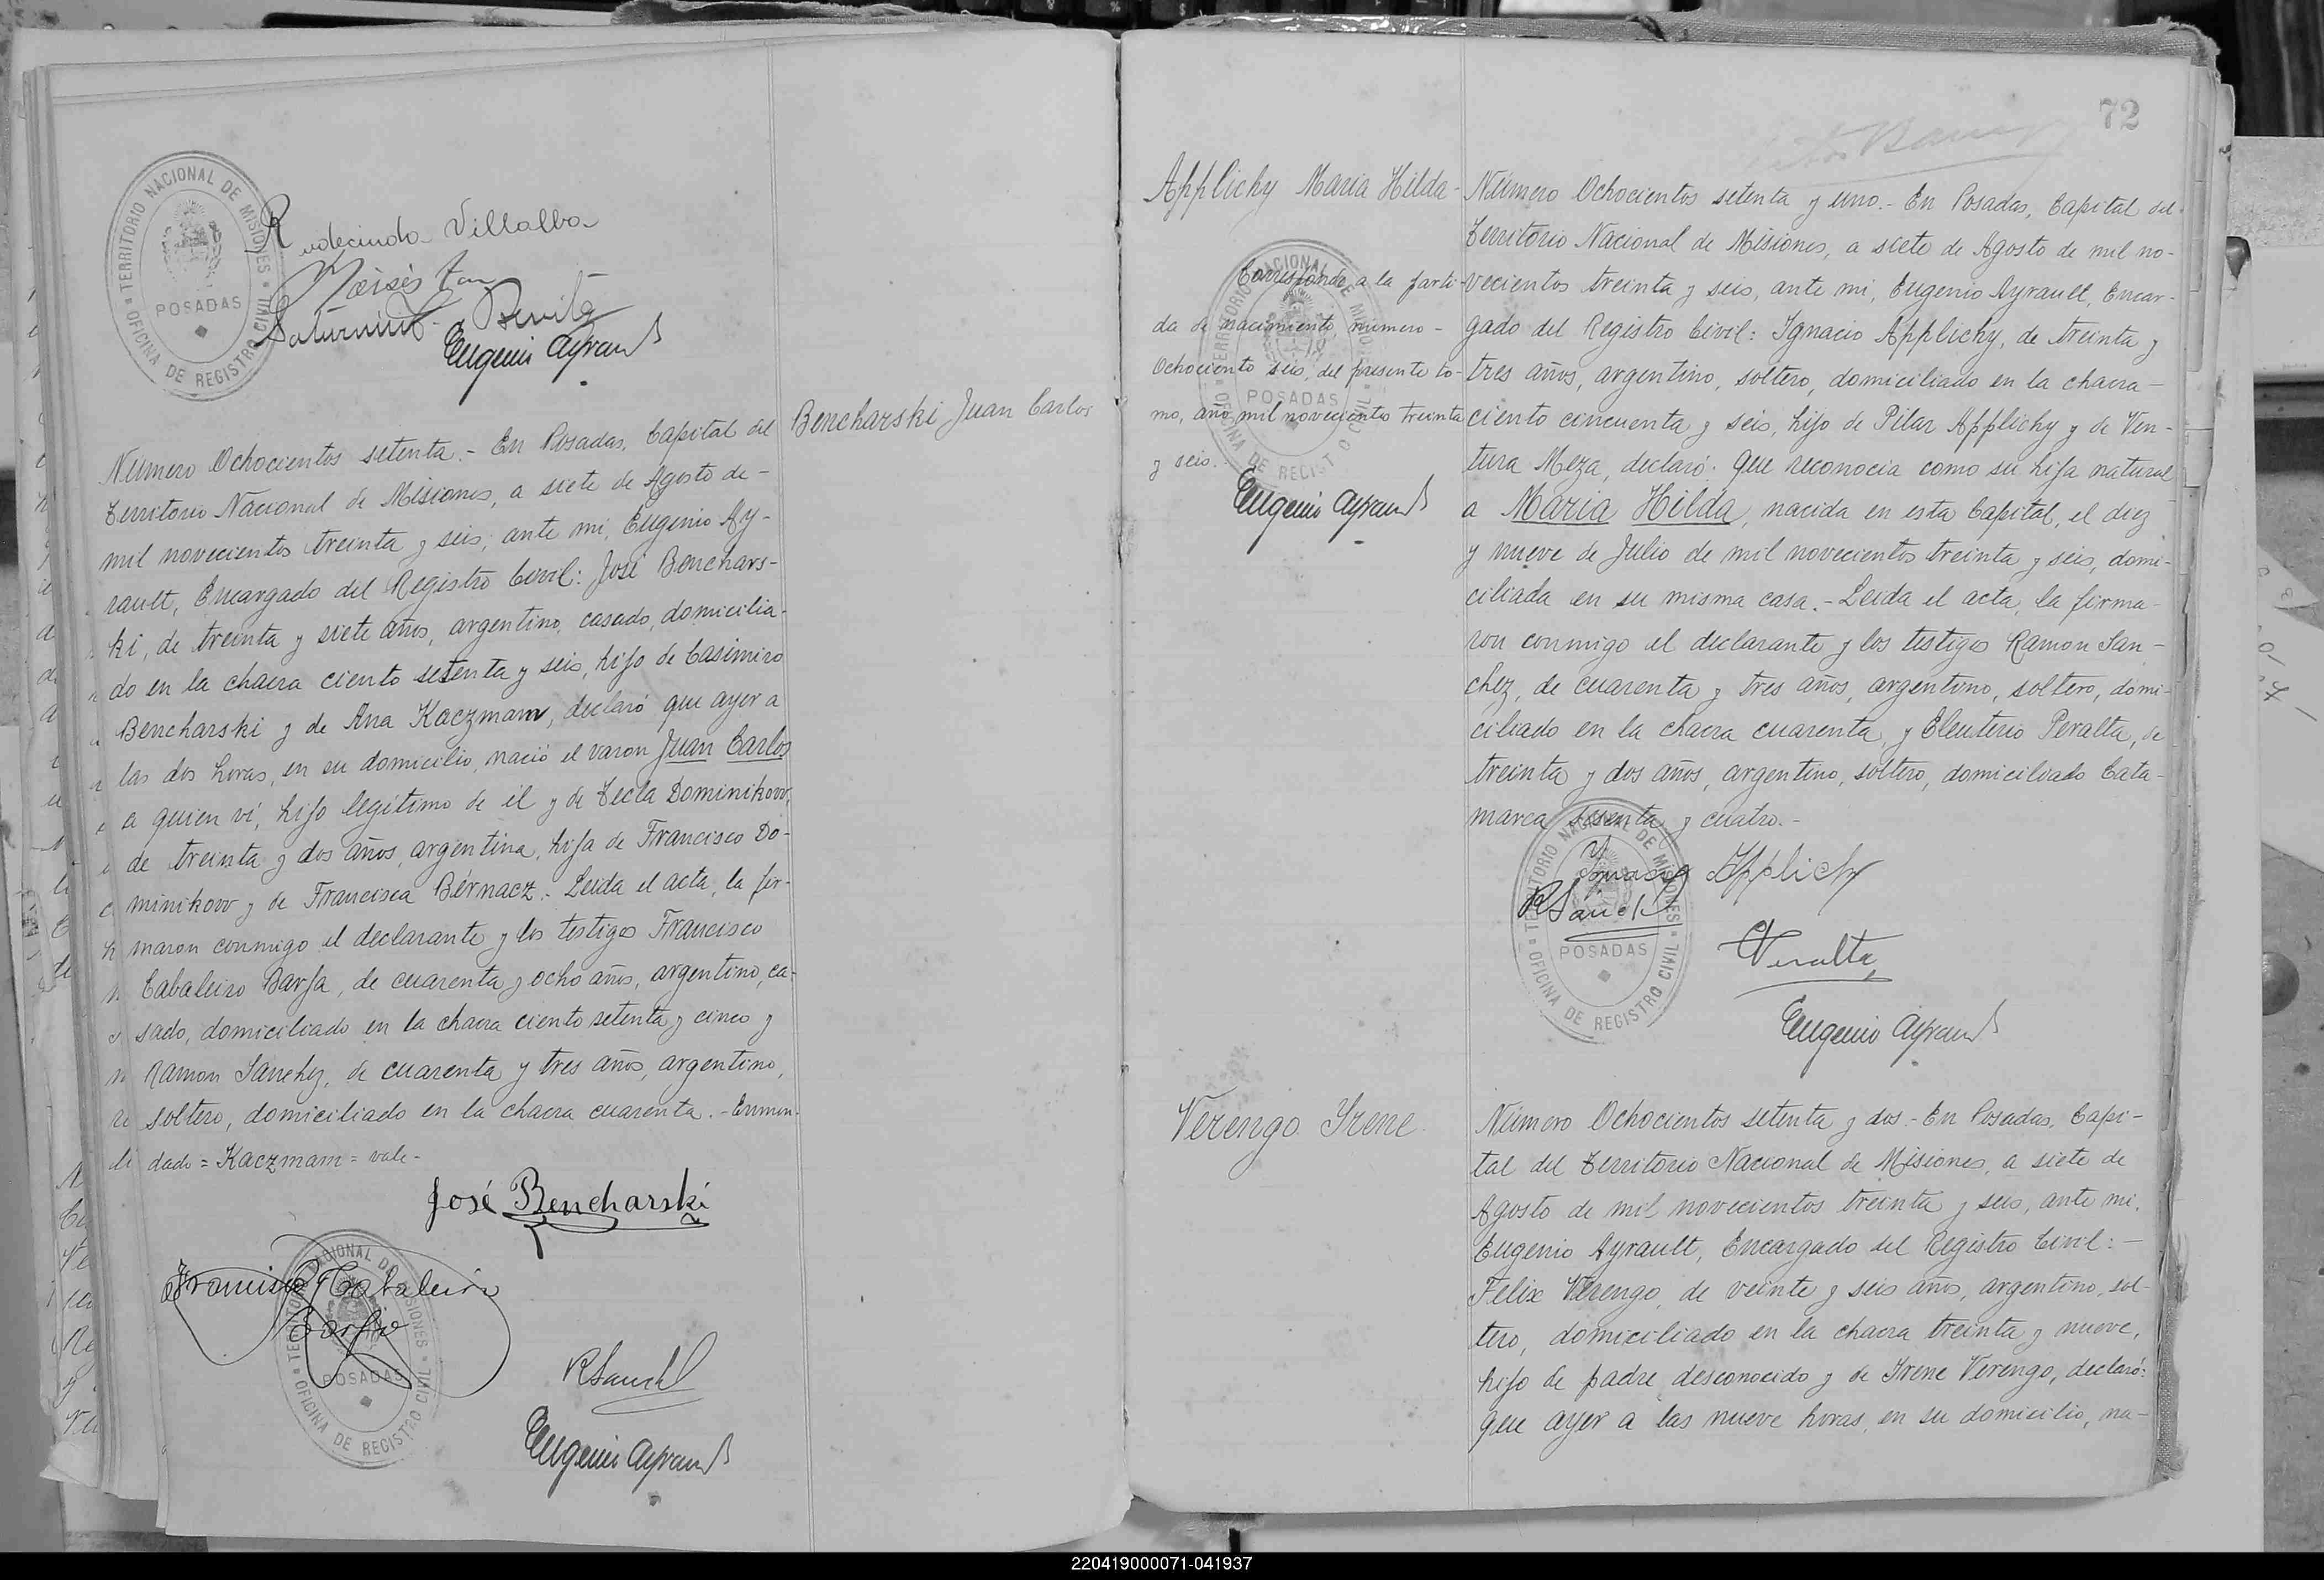 TERRITORIO NACIONAL DE MISIONES
POSADAS
OFICINA DE REGISTRO CIVIL
Rudecindo Villalba
Moisés
Saturnino
Eugenio Ayrault
Bencharski Juan Carlos
Número Ochocientos setenta.- En Posadas, Capital del
Territorio Nacional de Misiones, a siete de Agosto de-
mil novecientos treinta y seis, ante mi, Eugenio Ay-
rault, Encargado del Registro Civil: José Benchars-
ki, de treinta y siete años, argentino, casado, domicilia-
do en la chacra ciento setenta y seis, hijo de Casimiro
Bencharski y de Ana Kaczmam, declaró que ayer a
las dos horas, en su domicilio, nació el varon Juan Carlos
a quien ví, hijo legítimo de él y de Tecla Dominikow,
de treinta y dos años, argentina, hija de Francisco Do-
minikow y de Francisca Bérnacz.- Leida el acta, la fir-
maron conmigo el declarante y los testigos Francisco
Cabaleiro Barja, de cuarenta y ocho años, argentino, ca-
sado, domiciliado en la chacra ciento setenta y cinco y
Ramon Sanchez, de cuarenta y tres años, argentino,
soltero, domiciliado en la chacra cuarenta.-Enmen-
dado = Kaczmam = vale-
José Bencharski
Francisco Cabaleiro
Barja
TERRITORIO NACIONAL DE MISIONES
POSADAS
OFICINA DE REGISTRO CIVIL
RSanch
Eugenio Ayrault
72
Applichy Maria Hilda-
TERRITORIO NACIONAL DE MISIONES
POSADAS
OFICINA DE REGISTRO CIVIL
Corresponde a la parti-
da de nacimiento número-
Ochociento seis, del presente to-
mo, año mil novecientos treinta
y seis.
Eugenio Ayrault
Número Ochocientos setenta y uno.- En Posadas, Capital del
Territorio Nacional de Misiones, a siete de Agosto de mil no-
vecientos treinta y seis, ante mi, Eugenio Ayrault, Encar-
gado del Registro Civil: Ignacio Applichy, de treinta y
tres años, argentino, soltero, domiciliado en la chacra-
ciento cincuenta y seis, hijo de Pilar Applichy y de Ven-
tura Meza, declaró: que reconocia como su hija natural
a Maria Hilda, nacida en esta Capital, el diez
y nueve de Julio de mil novecientos treinta y seis, domi-
ciliada en su misma casa.- Leida el acta, la firma-
ron conmigo el declarante y los testigos Ramon San-
chez, de cuarenta y tres años, argentino, soltero, domi-
ciliado en la chacra cuarenta, y Eleuterio Peralta, de
treinta y dos años, argentino, soltero, domiciliado Cata-
marca sesenta y cuatro.-
Ignacio Applichy
RSanch
TERRITORIO NACIONAL DE MISIONES
POSADAS
OFICINA DE REGISTRO CIVIL
Peralta
Eugenio Ayrault
Verengo Irene
Número Ochocientos setenta y dos.- En Posadas, Capi-
tal del Territorio Nacional de Misiones, a siete de
Agosto de mil novecientos treinta y seis, ante mi,
Eugenio Ayrault, Encargado del Registro Civil:-
Felix Verengo, de veinte y seis años, argentino, sol-
tero, domiciliado en la chacra treinta y nueve,
hijo de padre desconocido y de Irene Verengo, declaró:
que ayer a las nueve horas, en su domicilio, na-
220419000071-041937